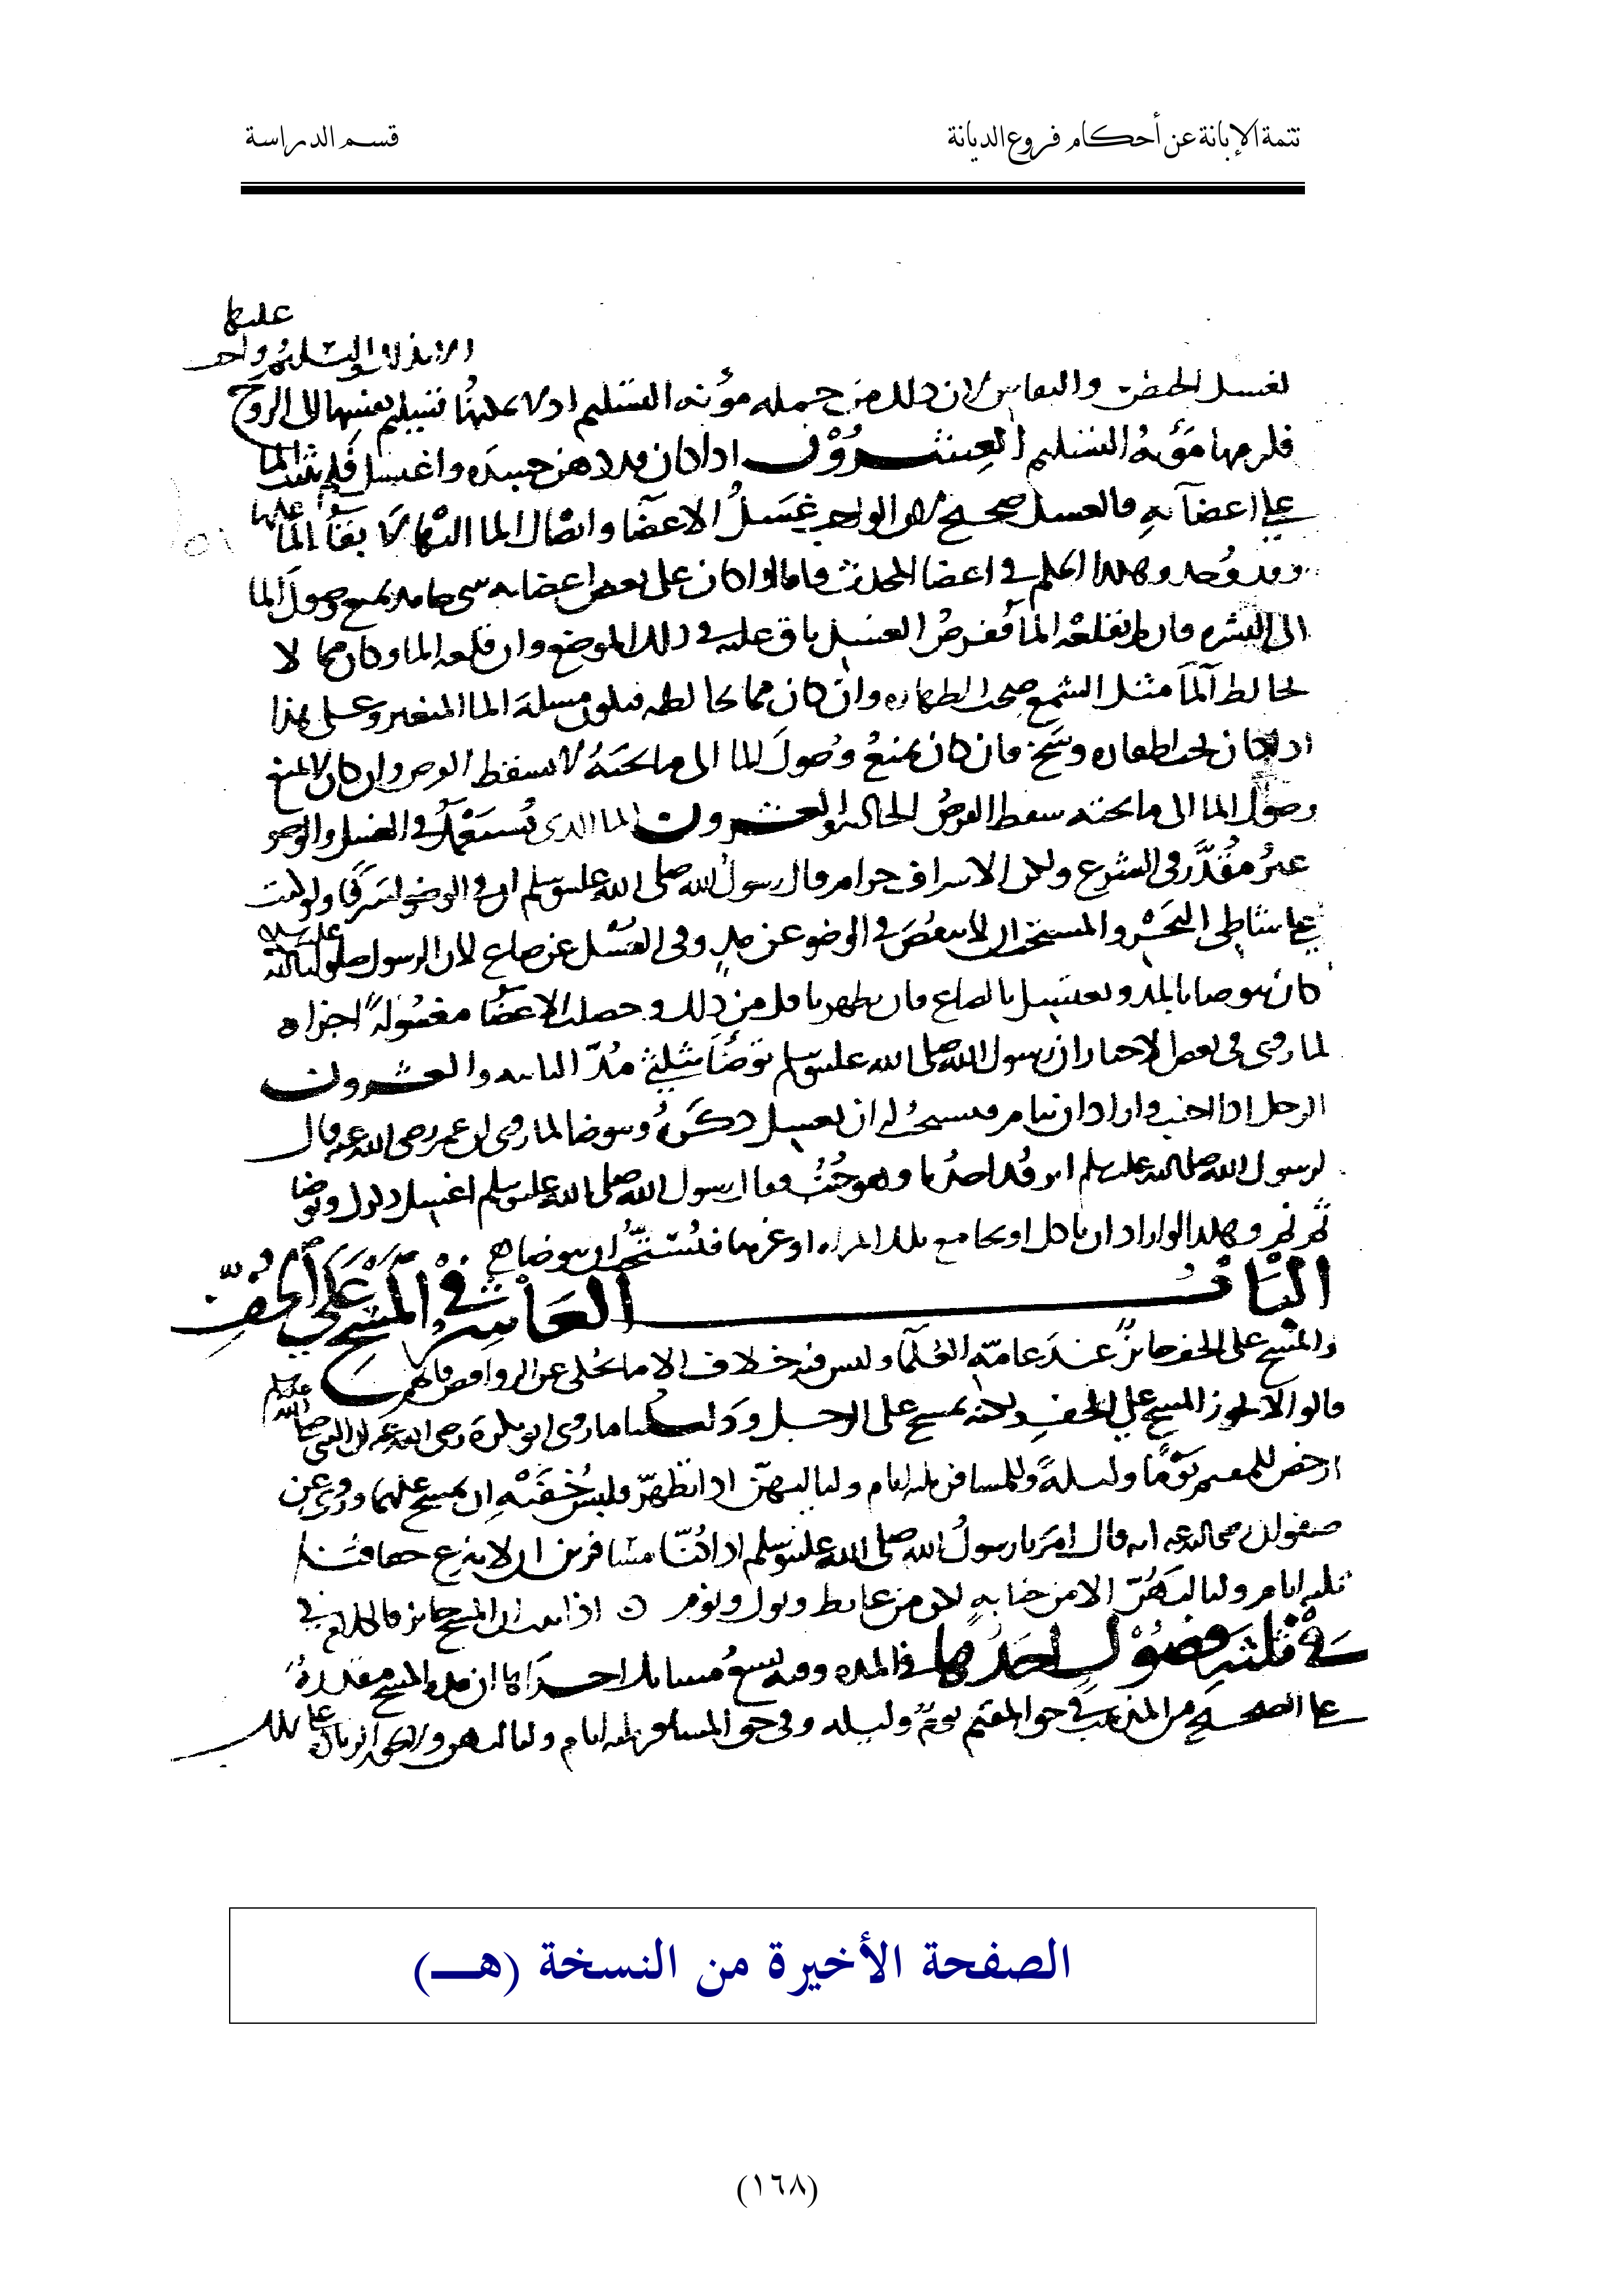 تتمة الإبانة عن أحكام فروع الديانة
قسم الدراسة
عليها
الا بذلك
لغسل الحيض والنفاس لان ذلك من جمله مؤنه التسليم اذ لا يمكنها تسليم نفسها الى الزوج
فلزمها مؤنة التسليم العشرون اذا كان قد دهن جسده واغتسل فلم يثبت الما
على اعضآيه فالغسل صحيح لان الواجب غسل الاعضا وايصال الما اليها لا بقآ المآ عليها
وقد وجد وهكذا الحكم في اعضا المحدث فاما اذا كان على بعض اعضايه شي جامد يمنع وصول الما
الى البشره فان لم يقلعه المآ ففرض الغسل باق عليه في ذلك الموضع وان قلعه الما وكان مما لا
يخالط المآ مثل الشمع صحت الطهاره وان كان مما يخالطه فيكون مسلة الما المتغير وعلى هذا
اذا كان تحت اظفاره وسخ فان كان يمنع وصول الما الى ما تحته لا يسقط الفرض وان كان لا يمنع
وصول الما الى ما تحته سقط الفرض الحاديه والعشرون الما الذي يستعمل في الغسل والوضو
غير مقدر في الشرع ولكن الاسراف حرام قال رسول الله صلى الله عليه وسلم ان في الوضو لسرفا ولو كنت
على شاطئ البحر والمستحب ان لا ينقص في الوضو عن مد وفي الغسل عن صاع لان الرسول صلوات الله عليه
كان يتوضا بالمد ويغتسل بالصاع فان تطهر باقل من ذلك وحصلت الاعضا مغسولة اجزاه
لما روى في بعض الاخبار ان رسول الله صلى الله عليه وسلم توضأ بثلثي مد الثانيه والعشرون
الرجل اذا اجنب واراد ان ينام فيستحب له ان يغسل ذكره ويتوضا لما روى ان عمر رضي الله عنه قال
لرسول الله صلى الله عليه وسلم ايرقد احدنا وهو جنب فقال رسول الله صلى الله عليه وسلم اغسل ذكرك وتوضا
ثم نم وهكذا لو اراد ان ياكل او يجامع تلك المراه او غيرها فيستحب ان يتوضا
الباب العاشر في المسح على الخف
والمسح على الخف جائز عند عامة العلمآ وليس فيه خلاف الا ما يحكى عن الروافض فانهم
قالوا لا يجوز المسح على الخف ولكنه يمسح على الرجل ودليلنا ما روى ابو بكرة رضي الله عنه ان النبي صلى الله عليه وسلم
ارخص للمقيم يوما وليلة وللمسافر ثلثه ايام ولياليهن اذا تطهر فلبس خفيه ان يمسح عليهما وروي عن
صفوان رضي الله عنه انه قال امرنا رسول الله صلى الله عليه وسلم اذا كنا مسافرين ان لا ننزع خفافنا
ثلثه ايام ولياليهن الا من جنابه لكن من غايط وبول ونوم اذا ثبت ان المسح جائز فالكلام في
في ثلثة فصول احدها في المده وفيه تسع مسايل احداها ان مدة المسح مقدرة
على الصحيح من المذهب في حق المقيم يوم وليله وفي حق المسافر ثلثه ايام ولياليهن
الصفحة الأخيرة من النسخة (هـ)
(١٦٨)